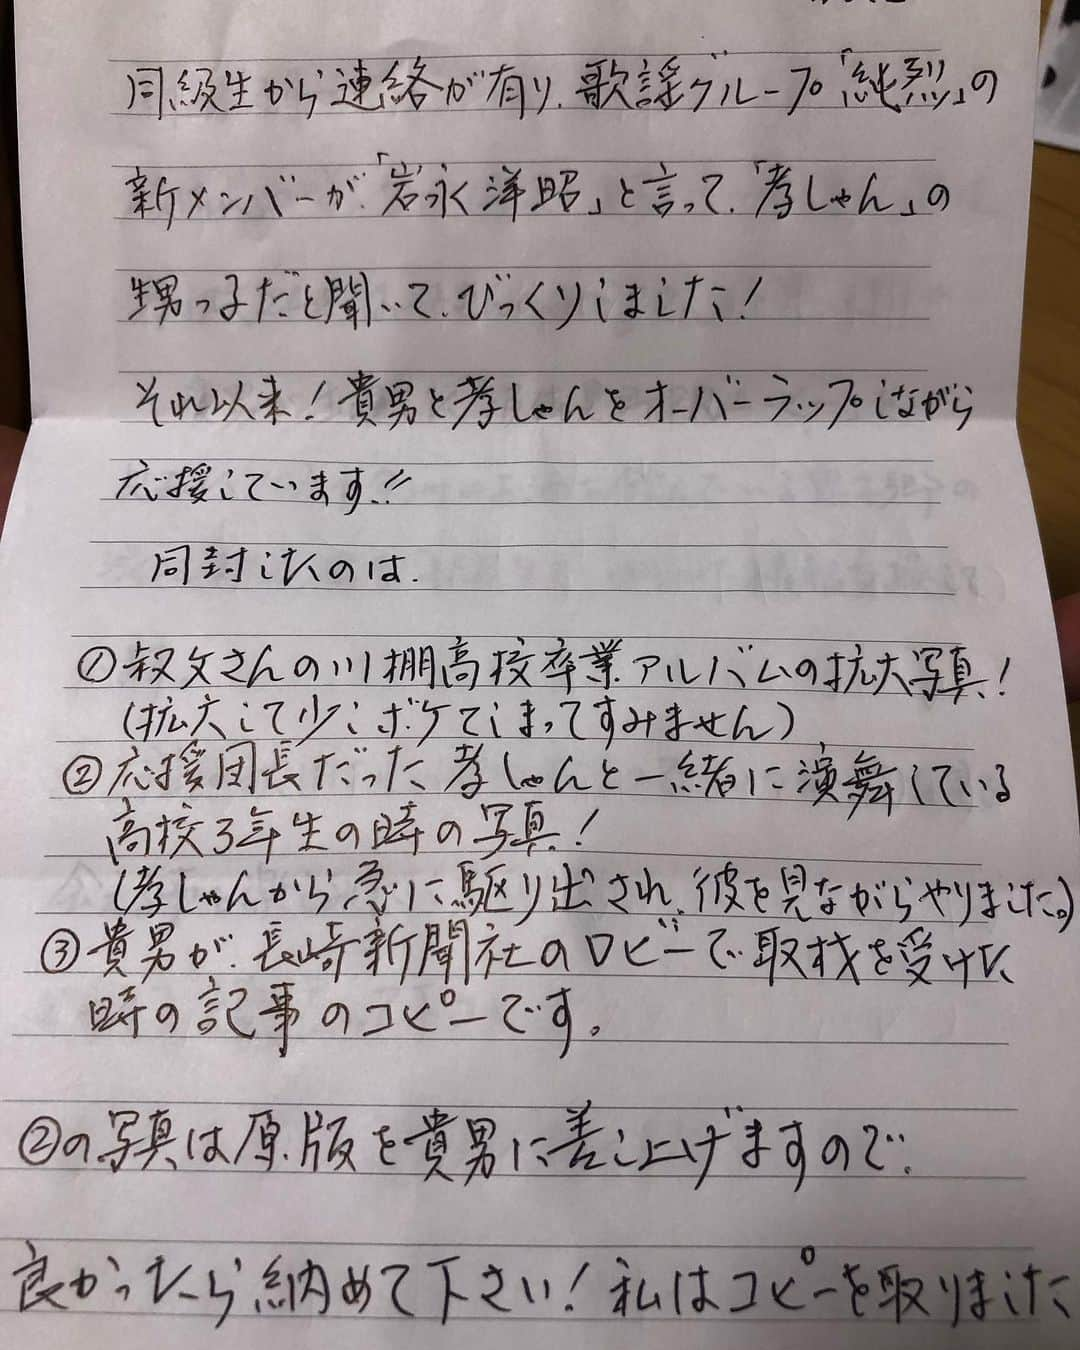 同級生から連絡が有り、歌謡グループ「純烈」の
新メンバーが「岩永洋昭」と言って、「孝しゃん」の
甥っ子だと聞いて、びっくりしました!
それ以来!貴男と孝しゃんをオーバーラップしながら
応援しています!!
同封したのは、
①叔父さんの川棚高校卒業アルバムの拡大写真!
(拡大して少しボケてしまってすみません)
②応援団長だった孝しゃんと一緒に演舞している
高校3年生の時の写真!
(孝しゃんから急に駆り出され、彼を見ながらやりました。)
③貴男が、長崎新聞社のロビーで取材を受けた
時の記事のコピーです。
②の写真は原版を貴男に差し上げますので、
良かったら納めて下さい!私はコピーを取りました